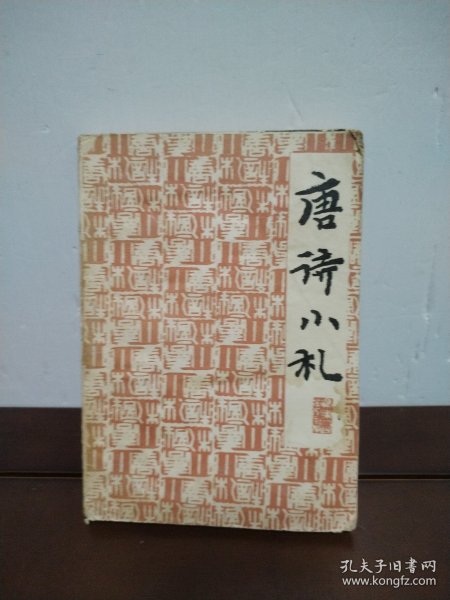 唐诗小札
孔夫子旧书网
www.kongfz.com